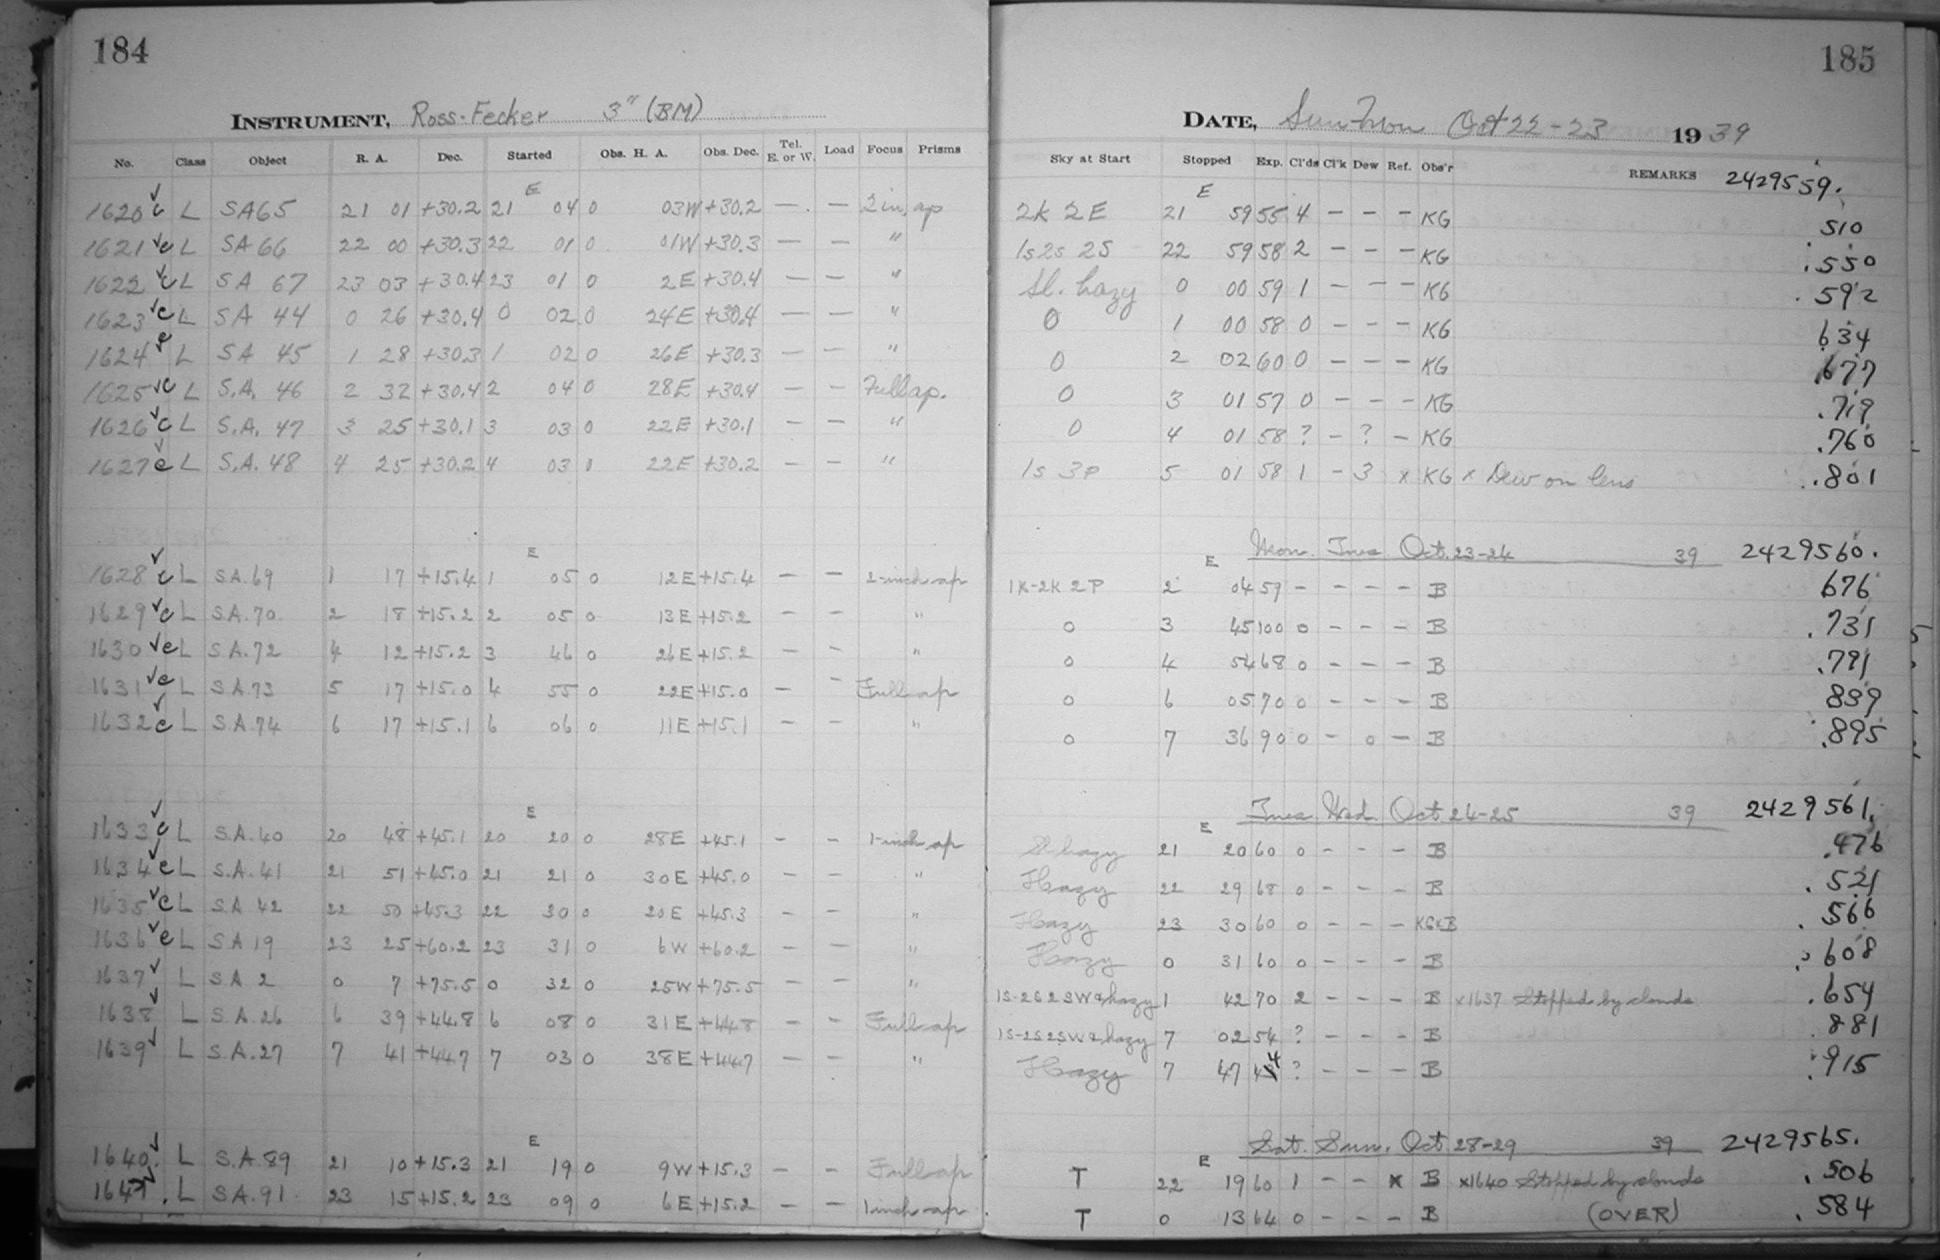 184
INSTRUMENT, Ross-Fecker 3" (BM)
No. Class Object R. A. Dec. Started Obs. H. A. Obs. Dec. Tel. E. or W. Load Focus Prisms
E
1620 c L SA65 21 01 +30.2 21 04 0 03W +30.2 — — 2 in. ap
1621 c L SA 66 22 00 +30.3 22 01 0 01W +30.3 — — "
1622 c L SA 67 23 03 +30.4 23 01 0 2E +30.4 — — "
1623 c L SA 44 0 26 +30.4 0 02 0 24E +30.4 — — "
1624 L SA 45 1 28 +30.3 1 02 0 26E +30.3 — — "
1625 c L S.A. 46 2 32 +30.4 2 04 0 28E +30.4 — — Full ap.
1626 c L S.A. 47 3 25 +30.1 3 03 0 22E +30.1 — — "
1627 c L S.A. 48 4 25 +30.2 4 03 0 22E +30.2 — — "
E
1628 c L S.A. 69 1 17 +15.4 1 05 0 12E +15.4 — — 2-inch ap
1629 c L S.A. 70 2 18 +15.2 2 05 0 13E +15.2 — — "
1630 c L S A. 72 4 12 +15.2 3 46 0 26E +15.2 — — "
1631 c L S A. 73 5 17 +15.0 4 55 0 22E +15.0 — — Full ap
1632 c L S.A. 74 6 17 +15.1 6 06 0 11E +15.1 — — "
E
1633 c L S.A. 40 20 48 +45.1 20 20 0 28E +45.1 — — 1-inch ap
1634 c L S.A. 41 21 51 +45.0 21 21 0 30E +45.0 — — "
1635 c L S.A 42 22 50 +45.3 22 30 0 20E +45.3 — — "
1636 c L S A 19 23 25 +60.2 23 31 0 6W +60.2 — — "
1637 L S A 2 0 7 +75.5 0 32 0 25W +75.5 — — "
1638 L S A. 26 6 39 +44.8 6 08 0 31E +44.8 — — Full ap
1639 L S.A. 27 7 41 +44.7 7 03 0 38E +44.7 — — "
E
1640 L S.A. 89 21 10 +15.3 21 19 0 9W +15.3 — — Full ap
1641 L S A. 91 23 15 +15.2 23 09 0 6E +15.2 — — 1 inch ap
185
DATE, Sun Mon Oct 22-23 1939
Sky at Start Stopped Exp. Cl'ds Cl'k Dew Ref. Obs'r REMARKS 2429559.
E
2k 2E 21 59 55 4 — — — KG 510
1s 2s 2S 22 59 58 2 — — — KG .550
Sl. hazy 0 00 59 1 — — — KG .592
0 1 00 58 0 — — — KG 634
0 2 02 60 0 — — — KG .677
0 3 01 57 0 — — — KG .719
0 4 01 58 ? — ? — KG .760
1s 3P 5 01 58 1 — 3 x KG x Dew on lens .801
E Mon. Tues Oct. 23-24 39 2429560.
1K-2K 2P 2 04 59 — — — — B 676
0 3 45 100 0 — — — B .731
0 4 54 68 0 — — — B .791
0 6 05 70 0 — — — B 839
0 7 36 90 0 — 0 — B .895
E Tues Wed. Oct 24-25 39 2429561.
Sl hazy 21 20 60 0 — — — B .476
Hazy 22 29 68 0 — — — B .521
Hazy 23 30 60 0 — — — KG&B .566
Hazy 0 31 60 0 — — — B .608
1S-2S 2SW & hazy 1 42 70 2 — — — B x1637 Stopped by clouds .654
1S-2S 2SW & hazy 7 02 54 ? — — — B .881
Hazy 7 47 44 ? — — — B .915
E Sat. Sun. Oct 28-29 39 2429565.
T 22 19 60 1 — — x B x1640 Stopped by clouds .506
T 0 13 64 0 — — — B (OVER) .584